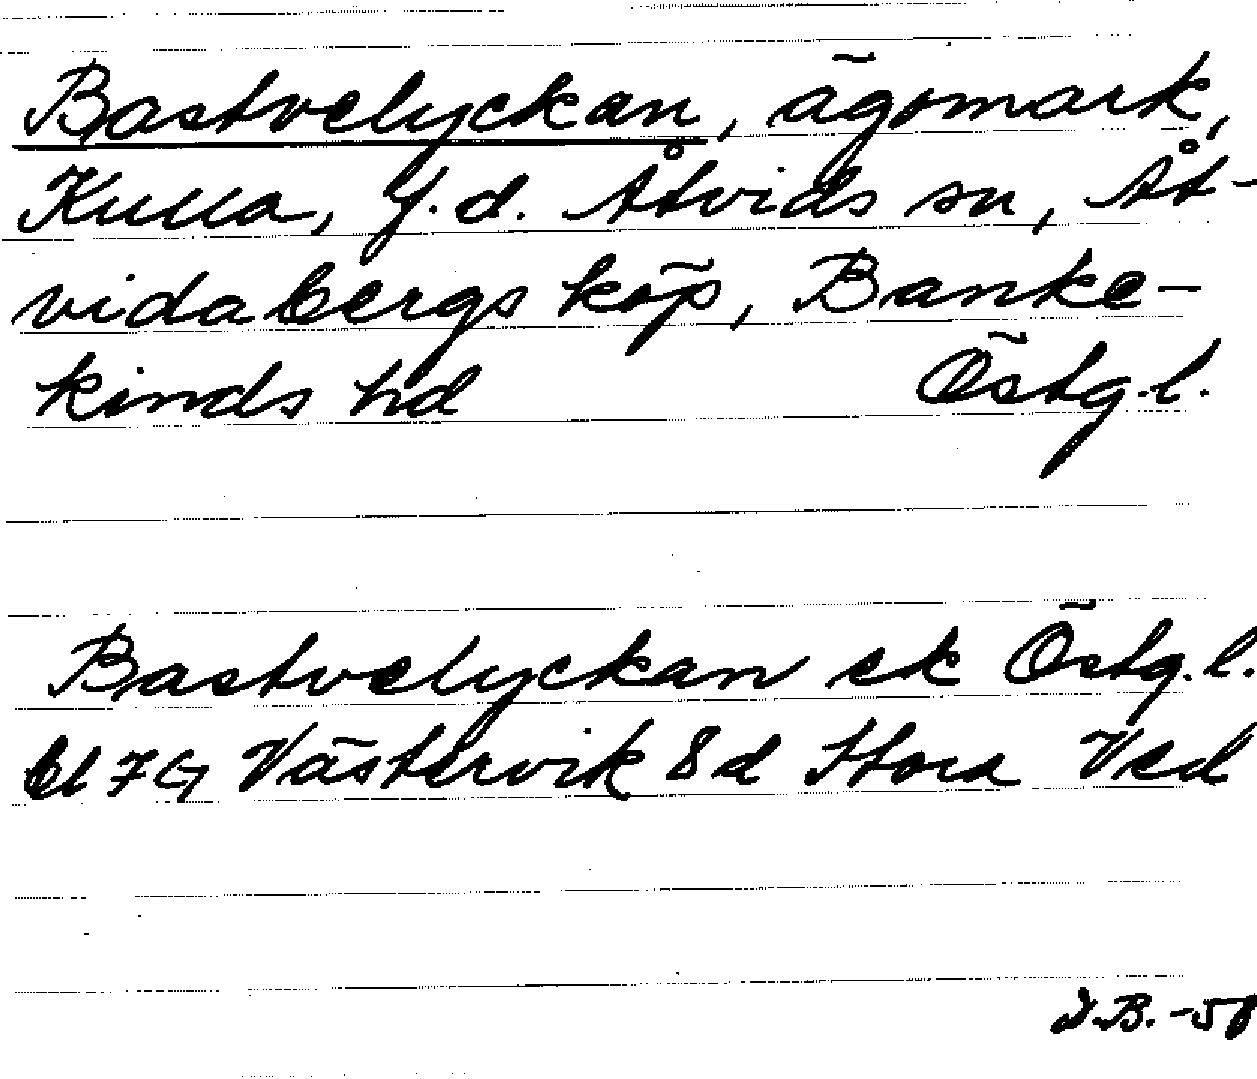 Bastvelyckan, ägomark,
Kulla, f.d. Åtvids sn, Åt-
vidabergs köp, Banke-
kinds hd Östg.l.
Bastvelyckan ek Östg.l.
bl 7G Västervik 8d Stora Ved